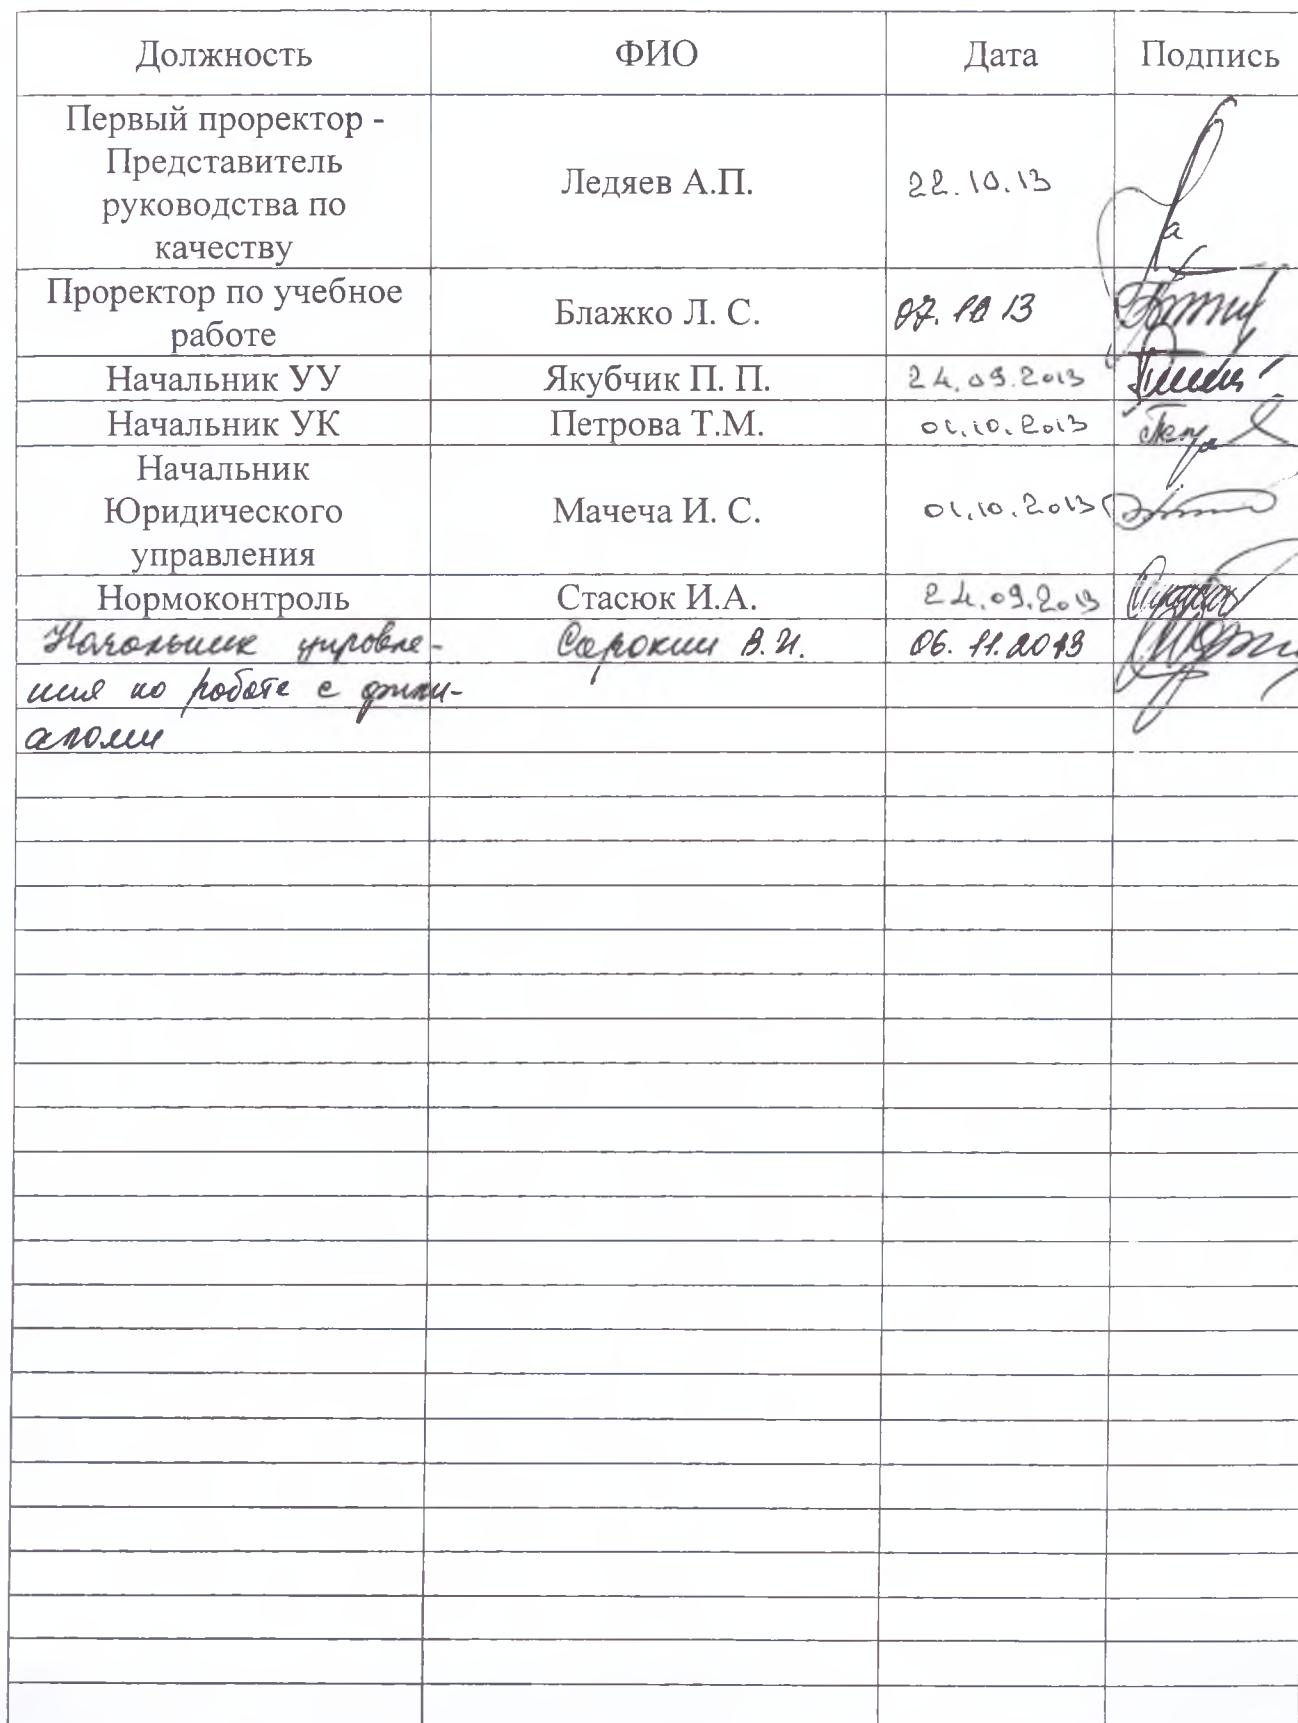 Должность ФИО Дата Подпись
Первый проректор -
Представитель
руководства по
качеству
Ледяев А.П. 22.10.13
Проректор по учебное
работе
Блажко Л. С. 07.10 13
Начальник УУ Якубчик П. П. 24.09.2013
Начальник УК Петрова Т.М. 01.10.2013
Начальник
Юридического
управления
Мачеча И. С. 01.10.2013
Нормоконтроль Стасюк И.А. 24.09.2013
Начальник управле- Сорокин В.И. 06.11.2013
ния по работе с фили-
алами